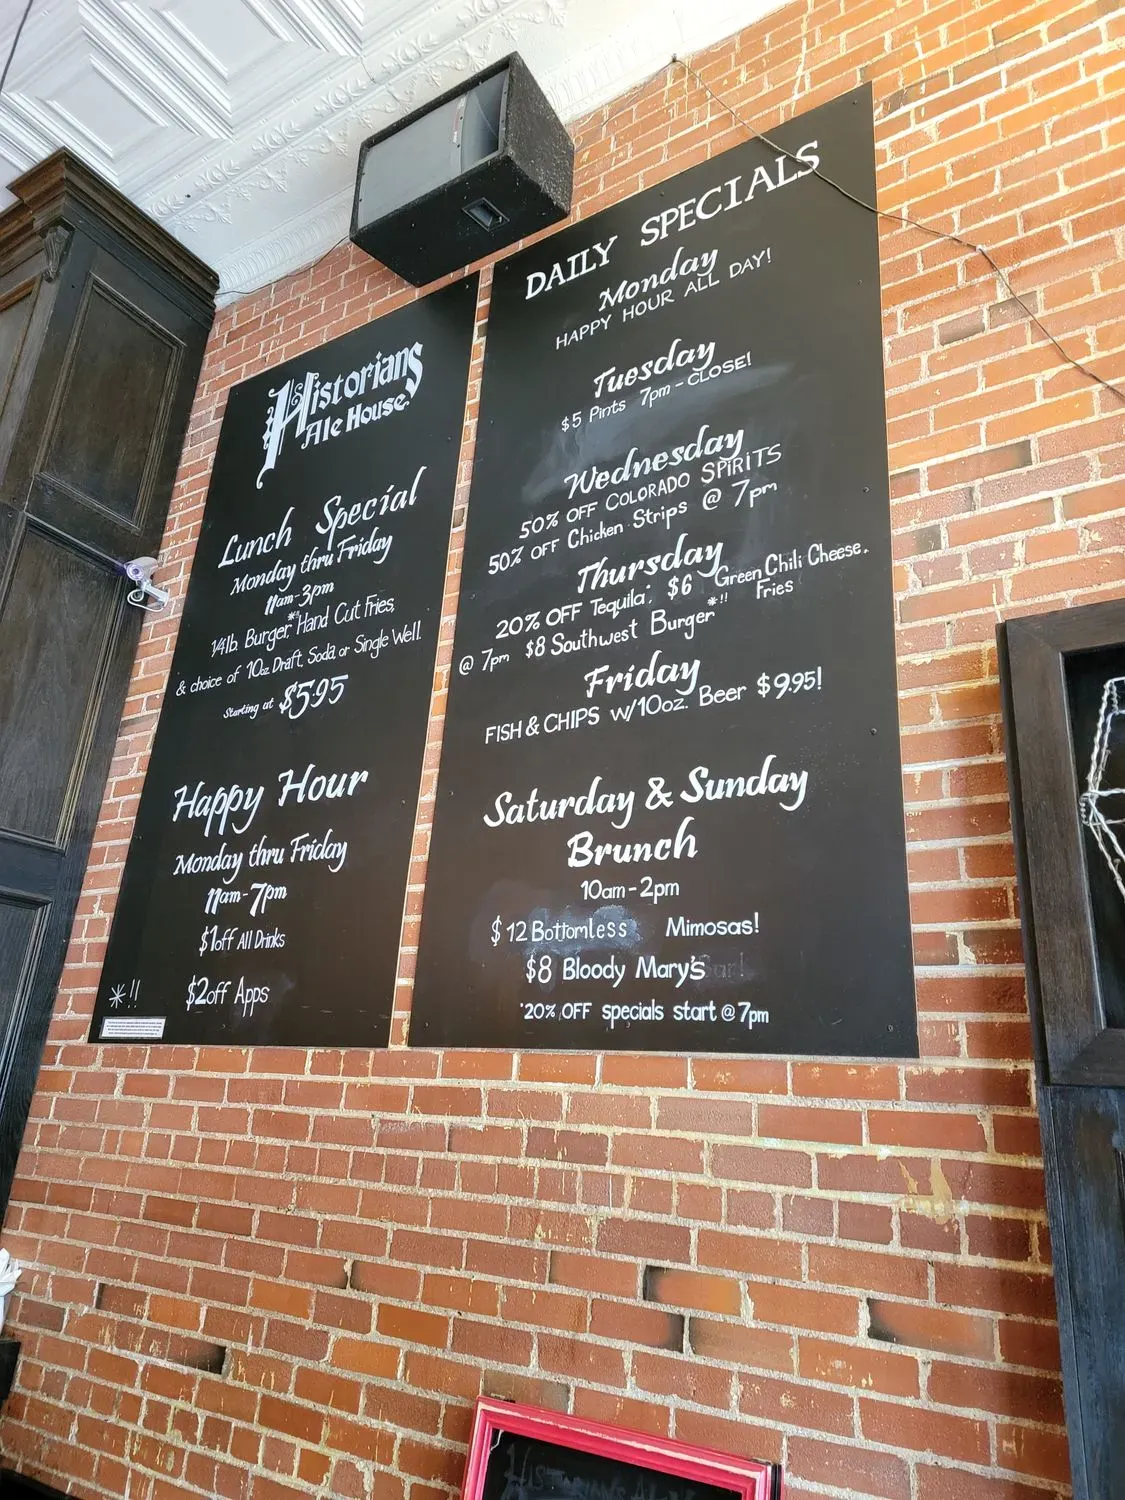 Historians
Ale House
Lunch Special
Monday thru Friday
11am-3pm
1/4lb. Burger,*!! Hand Cut Fries,
& choice of 10oz Draft, Soda, or Single Well.
Starting at $5.95
Happy Hour
Monday thru Friday
11am-7pm
$1off All Drinks
$2off Apps
*!!
DAILY SPECIALS
Monday
HAPPY HOUR ALL DAY!
Tuesday
$5 Pints 7pm-CLOSE!
Wednesday
50% OFF COLORADO SPIRITS
50% OFF Chicken Strips @ 7pm
Thursday
20% OFF Tequila, $6 Green Chili Cheese.
Fries
@ 7pm $8 Southwest Burger*!!
Friday
FISH & CHIPS w/10oz. Beer $9.95!
Saturday & Sunday
Brunch
10am-2pm
$12 Bottomless Mimosas!
$8 Bloody Mary's
*20% OFF specials start @ 7pm